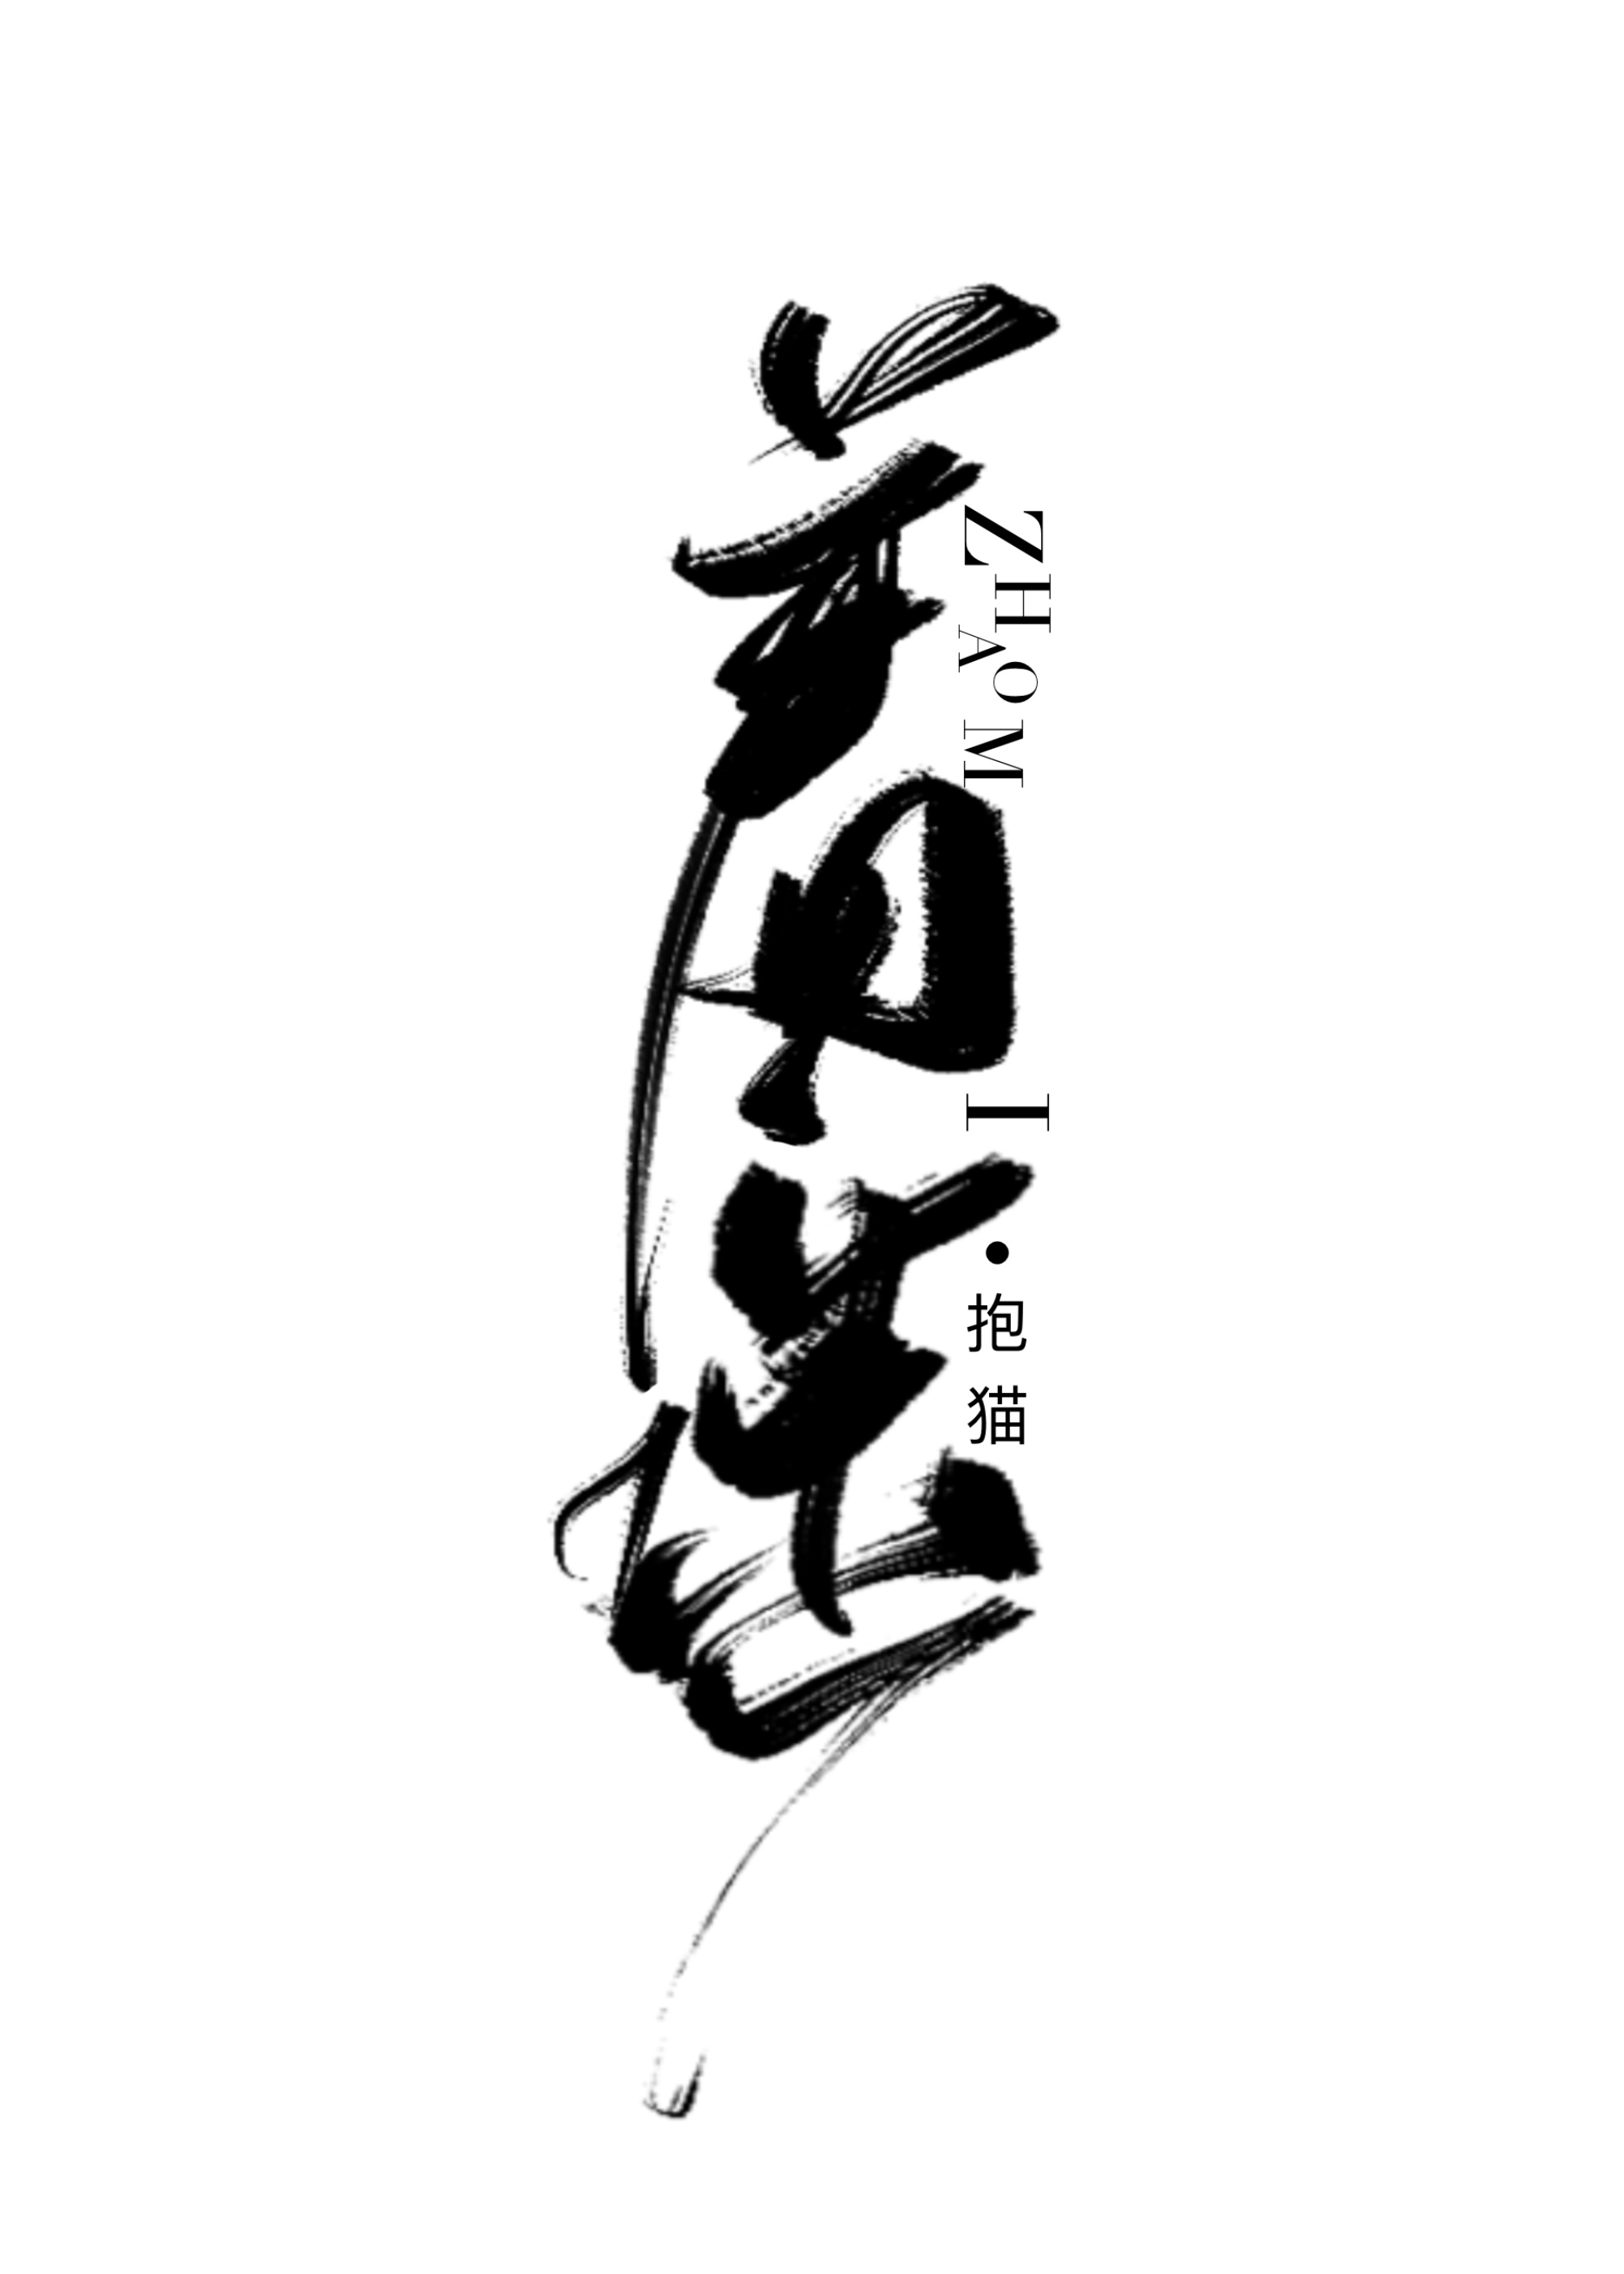 着迷
ZHAOMI
•抱猫